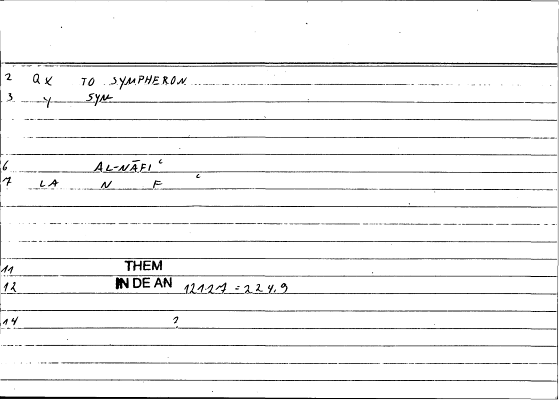 2 QX TO SYMPHERON
3 Y SYM
6 AL-NĀFIʿ
7 LA N F ʿ
11 THEM
12 IN DE AN 121.27 = 224.9
14 2